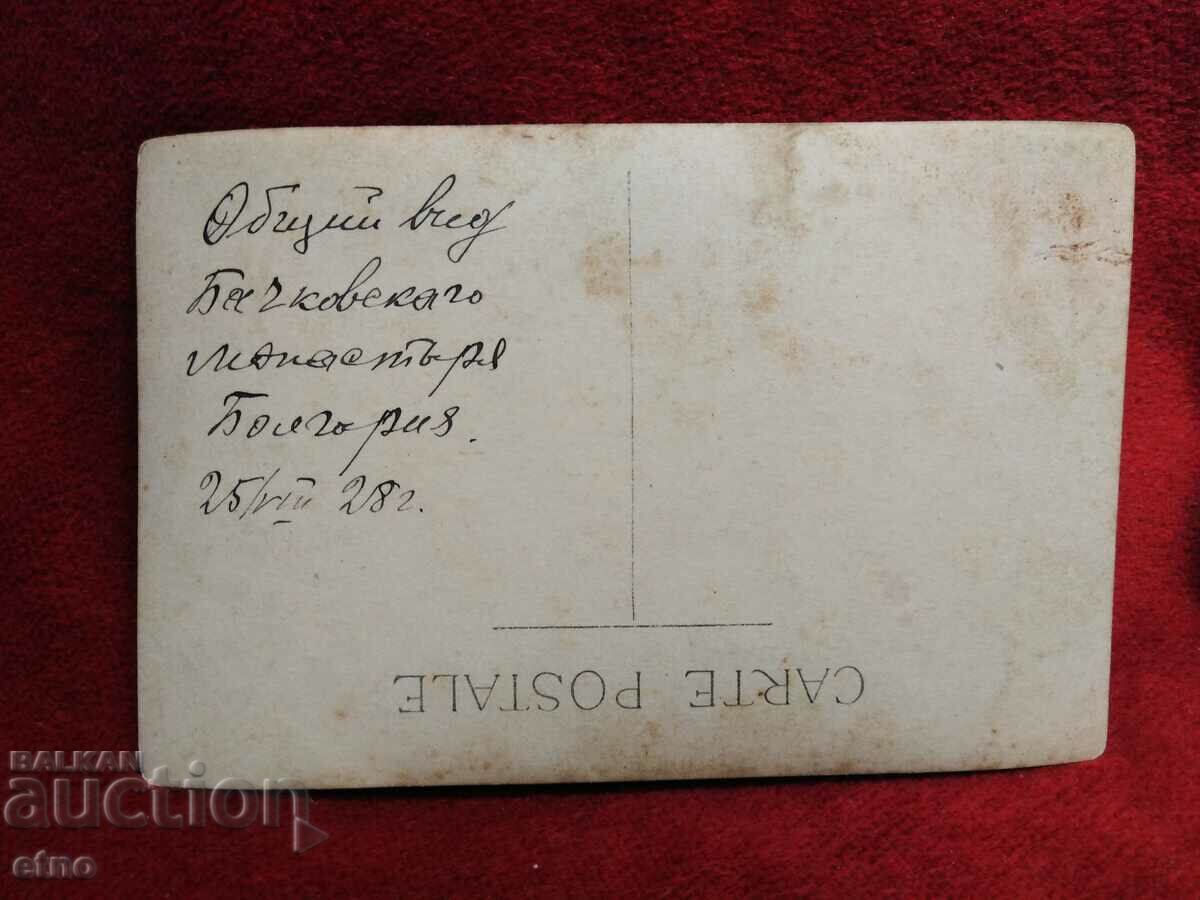 Общий вид
Бачковскаго
монастъря
Болгария.
25/VIII 28 г.
CARTE POSTALE
BALKAN
auction
etno